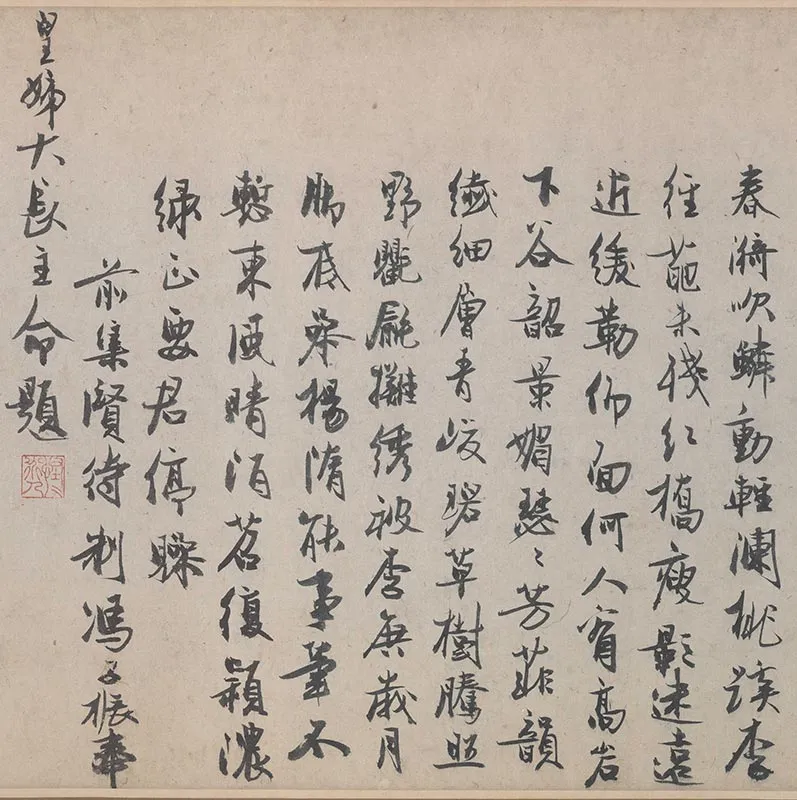 春漪吹鱗動輕瀾桃蹊李
徑葩未殘紅橋瘦影迷遠
近緩勒仰面何人高岩
下谷韶景媚瑟〻芳菲韻
纖細層青峻碧草樹騰照
野氍毹攤綉被李唐歲月
腳底參楊隋能事筆不
慙東風晴陌苕復穎濃
綠正要君停驂
前集賢待制馮子振奉
皇姊大長主命題